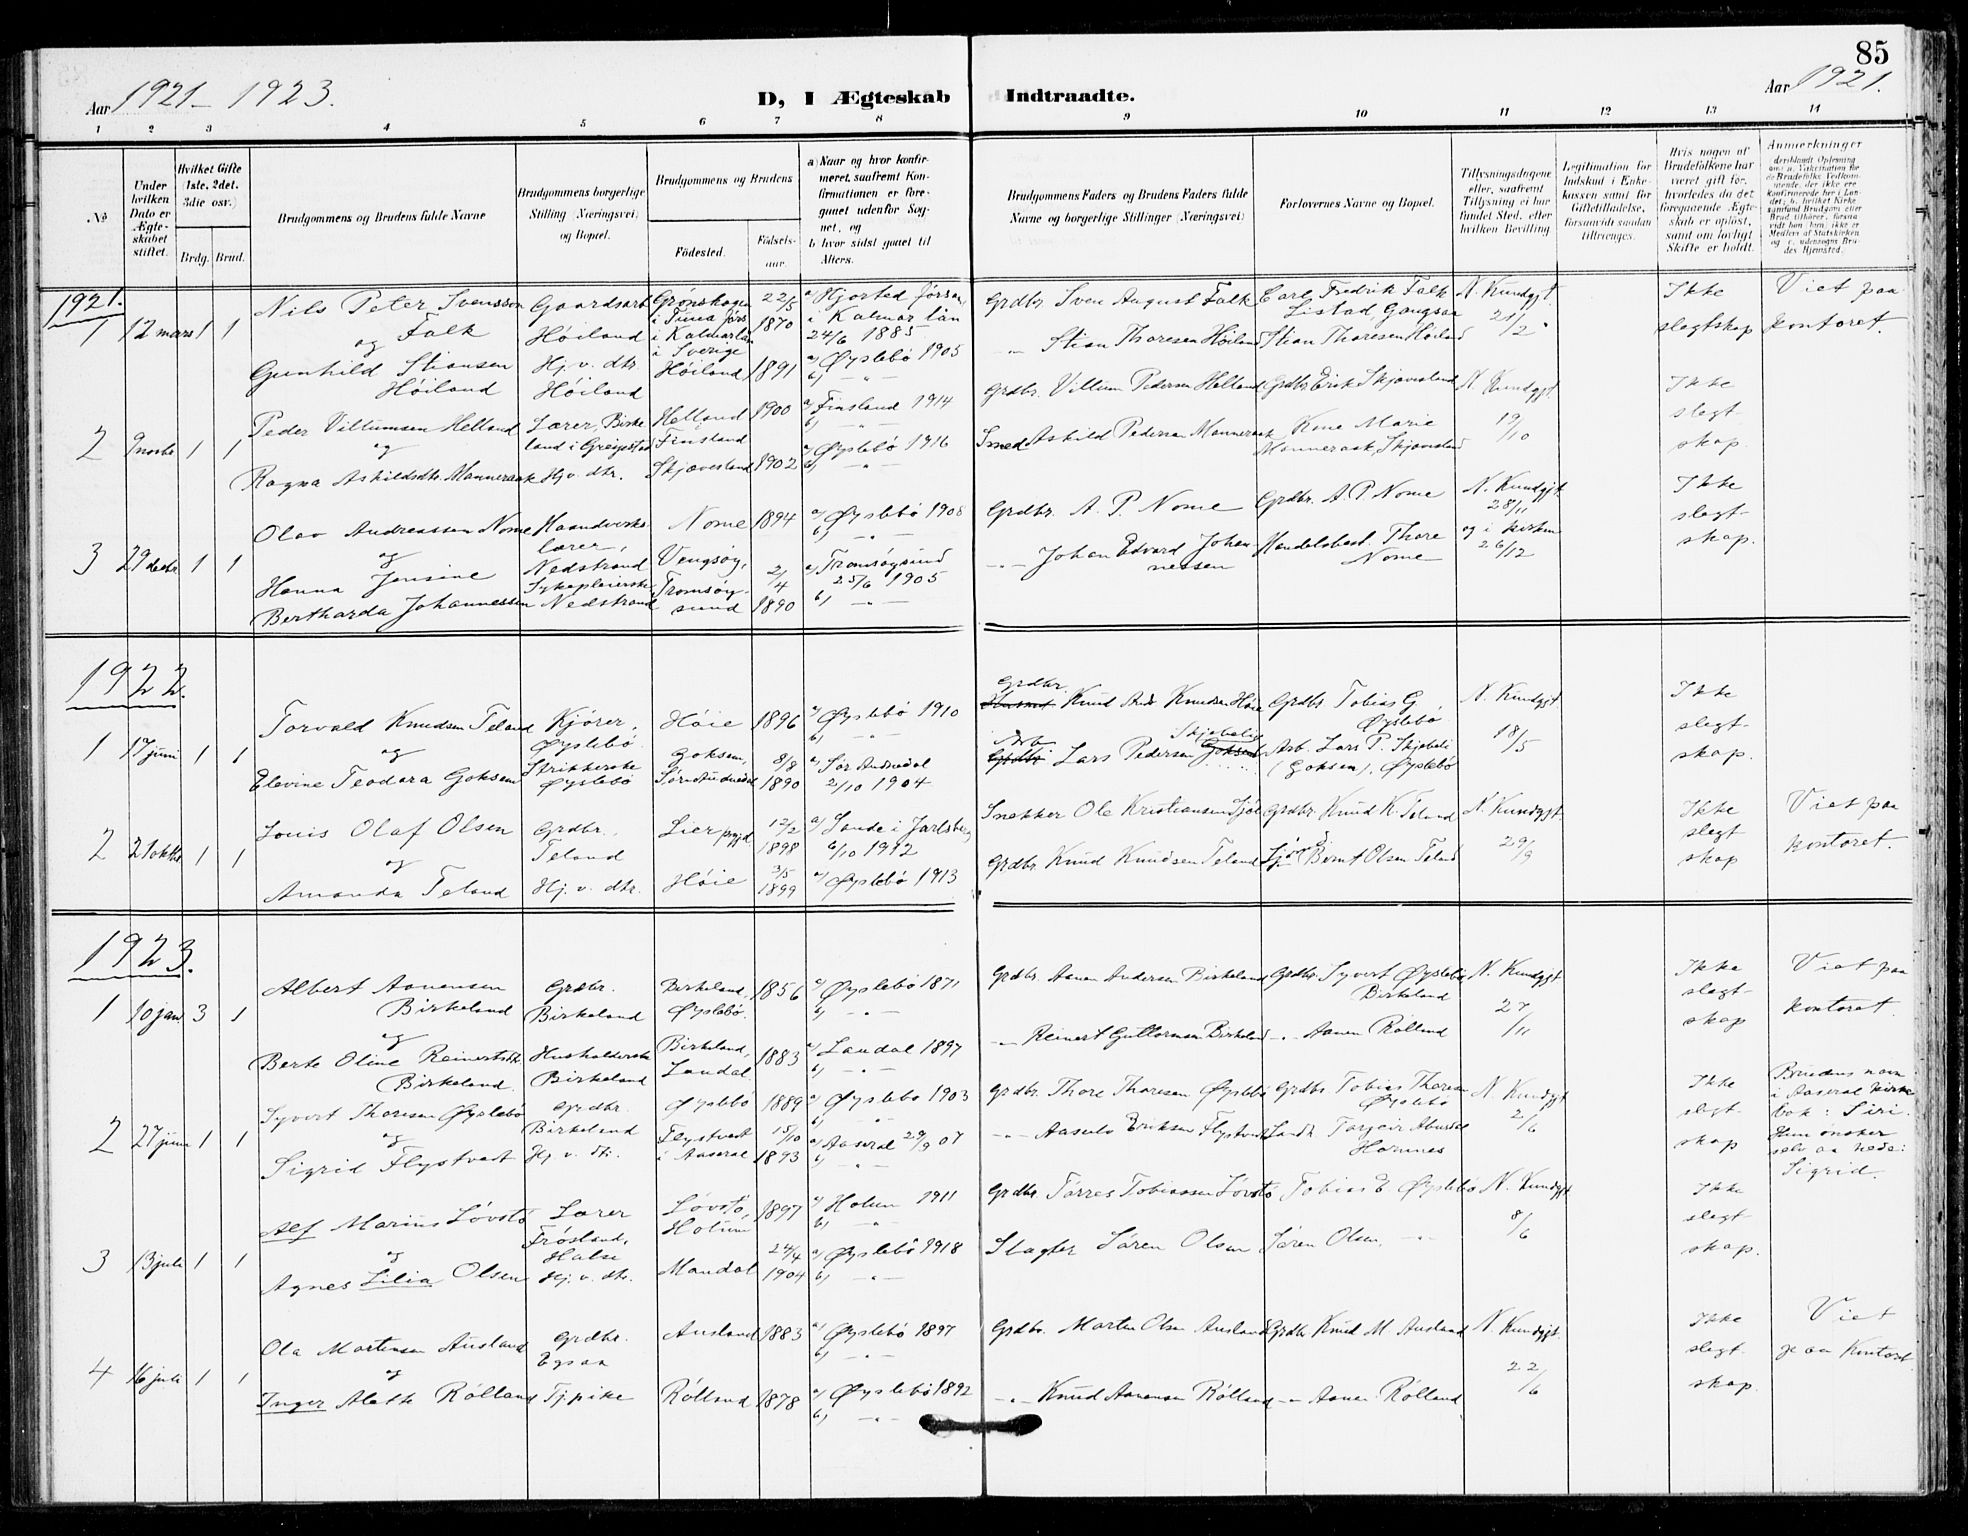 85
Aar 1921-1923. D, I Ægteskab Indtraadte. Aar 1921.
1 2 3 4 5 6 7 8 9 10 11 12 13 14
No
Under hvilken Dato er Ægteskabet stiftet.
Hvilket Gifte (1ste, 2det, 3die osv.)
Brdg. Brud.
Brudgommens og Brudens fulde Navne
Brudgommens borgerlige Stilling (Næringsvei) og Bopæl.
Brudgommens og Brudens
Födested. Födsels-aar.
a) Naar og hvor konfirmeret, saafremt Konfirmationen er foregaaet udenfor Sognet, og
b) hvor sidst gaaet til Alters.
Brudgommens Faders og Brudens Faders fulde Navne og borgerlige Stillinger (Næringsvei)
Forlovernes Navne og Bopæl.
Tillysningsdagene eller, saafremt Tillysning ei har fundet Sted, efter hvilken Bevilling.
Legitimation for Indskud i Enkekassen samt for Giftetilladelse, forsaavidt saadan tiltrænges.
Hvis nogen af Brudefolkene har været gift før, hvorledes da det foregaaende Ægteskab er opløst, samt om lovligt Skifte er holdt.
Anmerkninger
1921.
1 12 mars 1 1
Nils Peter Svensson Falk
og
Gunhild Stiansen Høiland
Gaardsarb. Høiland
Hj. v. dtr. Høiland
Grönskogen i Tuna Jörs. i Kalmar län i Sverige 22/5 1870
Høiland 1891
a) Hjorted försam. i Kalmar län 24/6 1885
a) Øyslebö 1905
b) - " -
Grdbr. Sven August Falk
- " - Stian Thoresen Høiland
Carl Fredrik Falk Listad Gangsaa
Stian Thoresen Høiland
N. Kundgjt. 21/2
Ikke slegtskap
Viet paa kontoret.
2 9 novbr 1 1
Peder Villumsen Helland
og
Ragna Askildsdtr. Manneraak
Lærer, Birkeland i Greipestad
Hj. v. dtr.
Helland Finsland 1900
Skjævesland 1902
a) Finsland 1914
b) - " -
a) Øyslebö 1916
b) - " -
Grdbr. Villum Pedersen Helland
Smed Askild Pedersen Manneraak
Grdbr. Erik Skjævesland
Kone Marie Manneraak, Skjævesland
N. Kundgjt. 19/10
Ikke slegtskap.
3 29 decbr 1 1
Olav Andreassen Nome
og
Hanna Jensine Bertharda Johannessen
Haandverkslærer, Nedstrand
Sykepleierske, Nedstrand
Nome 1894
Vengsøy, Tromsøysund 2/4 1890
a) Øyslebö 1908
b) - " -
a) Tromsøysund 25/6 1905
b) - " -
Grdbr. A. P. Nome
- " - Johan Edvard Johannessen
Grdbr. A. P. Nome
Handelsbest. Thore Nome
N. Kundgjt. 28/11 og i kirken 26/12
Ikke slegtskap.
1922.
1 17 juni 1 1
Torvald Knudsen Teland
og
Elevine Teodora Goksem
Kjörer, Øyslebö
Strikkerske Øyslebö
Høie 1896
Goksem, Sör-Audnedal 8/8 1890
a) Øyslebö 1910
b) - " -
a) Sör Audnedal 2/10 1904
Grdbr. Knud Ands Knudsen Høie
Arb. Lars Pedersen Skjebeli Goksem
Grdbr. Tobias G. Øyslebö
Arb. Lars P. Skjebeli (Goksem), Øyslebö
N. Kundgjt. 18/5
Ikke slegtskap.
2 21 oktbr 1 1
Louis Olaf Olsen
og
Amanda Teland
Grdbr. Teland
Hj. v. dtr.
Lier prgjd 12/2 1898
Høie 3/5 1899
a) Sande i Jarlsberg 6/10 1912
a) Øyslebö 1913
Snekker Ole Kristiansen Sjöl
Grdbr. Knud Knudsen Teland
Grdbr. Knud K. Teland
Bernt Olsen Teland
N. Kundgjt. 29/9
Ikke slegtskap
Viet paa kontoret.
1923.
1 10 jan 3 1
Albert Aanensen Birkeland
og
Berte Oline Reinertsdtr. Birkeland
Grdbr. Birkeland
Husholderske Birkeland
Birkeland, Øyslebö. 1856
Birkeland, Laudal 1883
a) Øyslebö 1871
b) - " -
a) Laudal 1897
b) - " -
Grdbr. Aanen Andersen Birkeland
- " - Reinert Guttormsen Birkeland
Grdbr. Syvert Øyslebö Birkeland
- " - Aanen Rölland
N. Kundgjt. 27/11
Ikke slegtskap
Viet paa kontoret.
2 27 juni 1 1
Syvert Thoresen Øyslebö
og
Sigrid Flystveit
Grdbr. Birkeland
Hj. v. dtr.
Øyslebö 1889
Flystveit i Aaseral 15/10 1893
a) Øyslebö 1903
b) - " -
a) Aaseral 29/9 07
b) - " -
Grdbr. Thore Thoresen Øyslebö
- " - Aasulv Eriksen Flystveit
Grdbr. Tobias Thoresen Øyslebö
Landh. Torgeir Abusdal Hornnes
N. Kundgjt. 2/6
Ikke slegtskap
Brudens navn i Aaseral kirkebok: Siri. Hun ønsker selv aa hede: Sigrid.
3 13 juli 1 1
Alf Marius Lövstö
og
Agnes Lilia Olsen
Lærer Fröisland, Halse
Hj. v. dtr.
Lövstö, Holum 1897
Mandal 24/4 1904
a) Holum 1911
b) - " -
a) Øyslebö 1918
b) - " -
Grdbr. Törres Tobiassen Lövstö
Slagter Sören Olsen
Tobias E Øyslebö
Sören Olsen, - " -
N. Kundgjt. 8/6
Ikke slegtskap.
4 16 juli 1 1
Ola Martensen Ausland
og
Inger Alette Rölland
Grdbr. Egsaa
Tj.pike
Ausland 1883
Rölland 1878
a) Øyslebö 1897
b) - " -
a) Øyslebö 1892
b) - " -
Grdbr. Marten Olsen Ausland
- " - Knud Aanensen Rölland
Grdbr. Knud M. Ausland
- " - Aanen Rölland
N. Kundgjt. 22/6
Ikke slegtskap.
Viet paa Kontoret